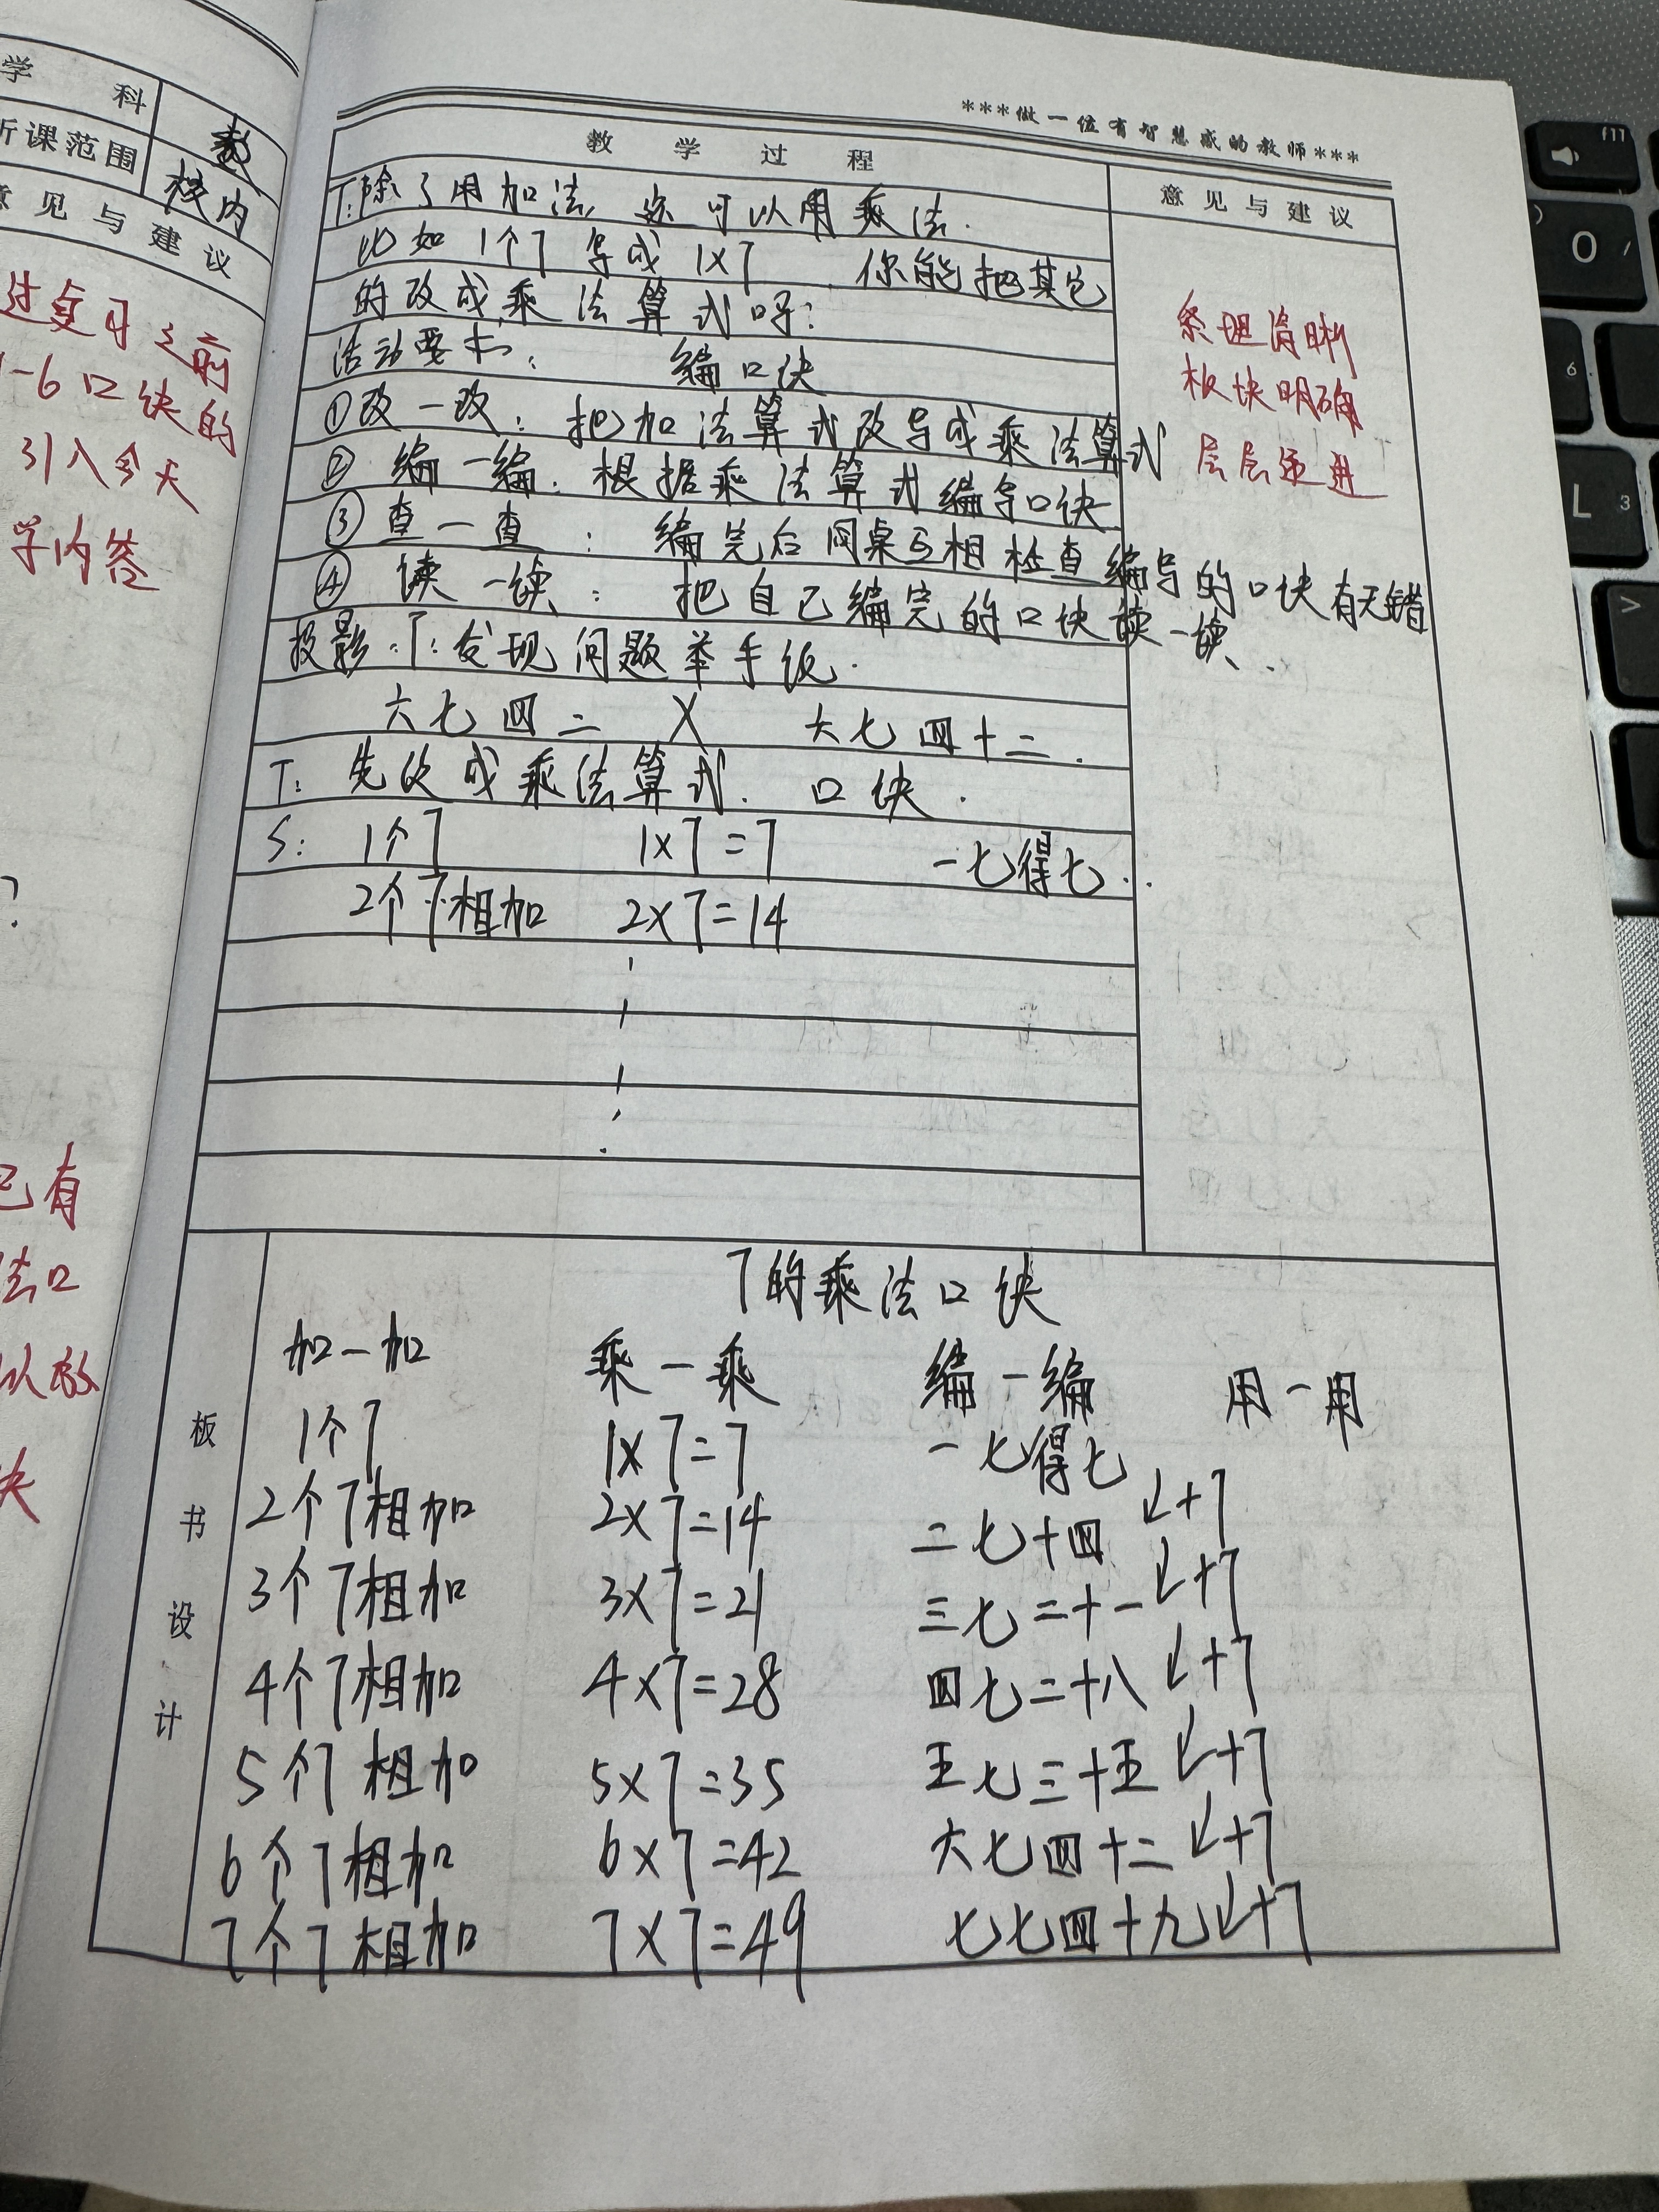 学 科 数
听课范围 校内
意 见 与 建 议
过复习之前
1-6口诀的
引入今天
学内容
?
已有
法口
以放
诀
***做一位有智慧感的教师***
教 学 过 程
意 见 与 建 议
T:除了用加法,还可以用乘法.
比如1个7写成1×7 你能把其它
的改成乘法算式吗?
活动要求: 编口诀
①改一改:把加法算式改写成乘法算式
②编一编:根据乘法算式编写口诀
③查一查:编完后同桌互相检查编写的口诀有无错
④读一读:把自己编完的口诀读一读.
投影:T:发现问题举手纸.
六七四二 X 六七四十二.
T:先改成乘法算式. 口诀.
S: 1个7 1×7=7 一七得七..
2个7相加 2×7=14
条理清晰
板块明确
层层递进
板书设计
7的乘法口诀
加一加 乘一乘 编一编 用一用
1个7 1×7=7 一七得七
2个7相加 2×7=14 二七十四 ↙+7
3个7相加 3×7=21 三七二十一 ↙+7
4个7相加 4×7=28 四七二十八 ↙+7
5个7相加 5×7=35 五七三十五 ↙+7
6个7相加 6×7=42 六七四十二 ↙+7
7个7相加 7×7=49 七七四十九 ↙+7
f11
)
0
/
6
L
3
>